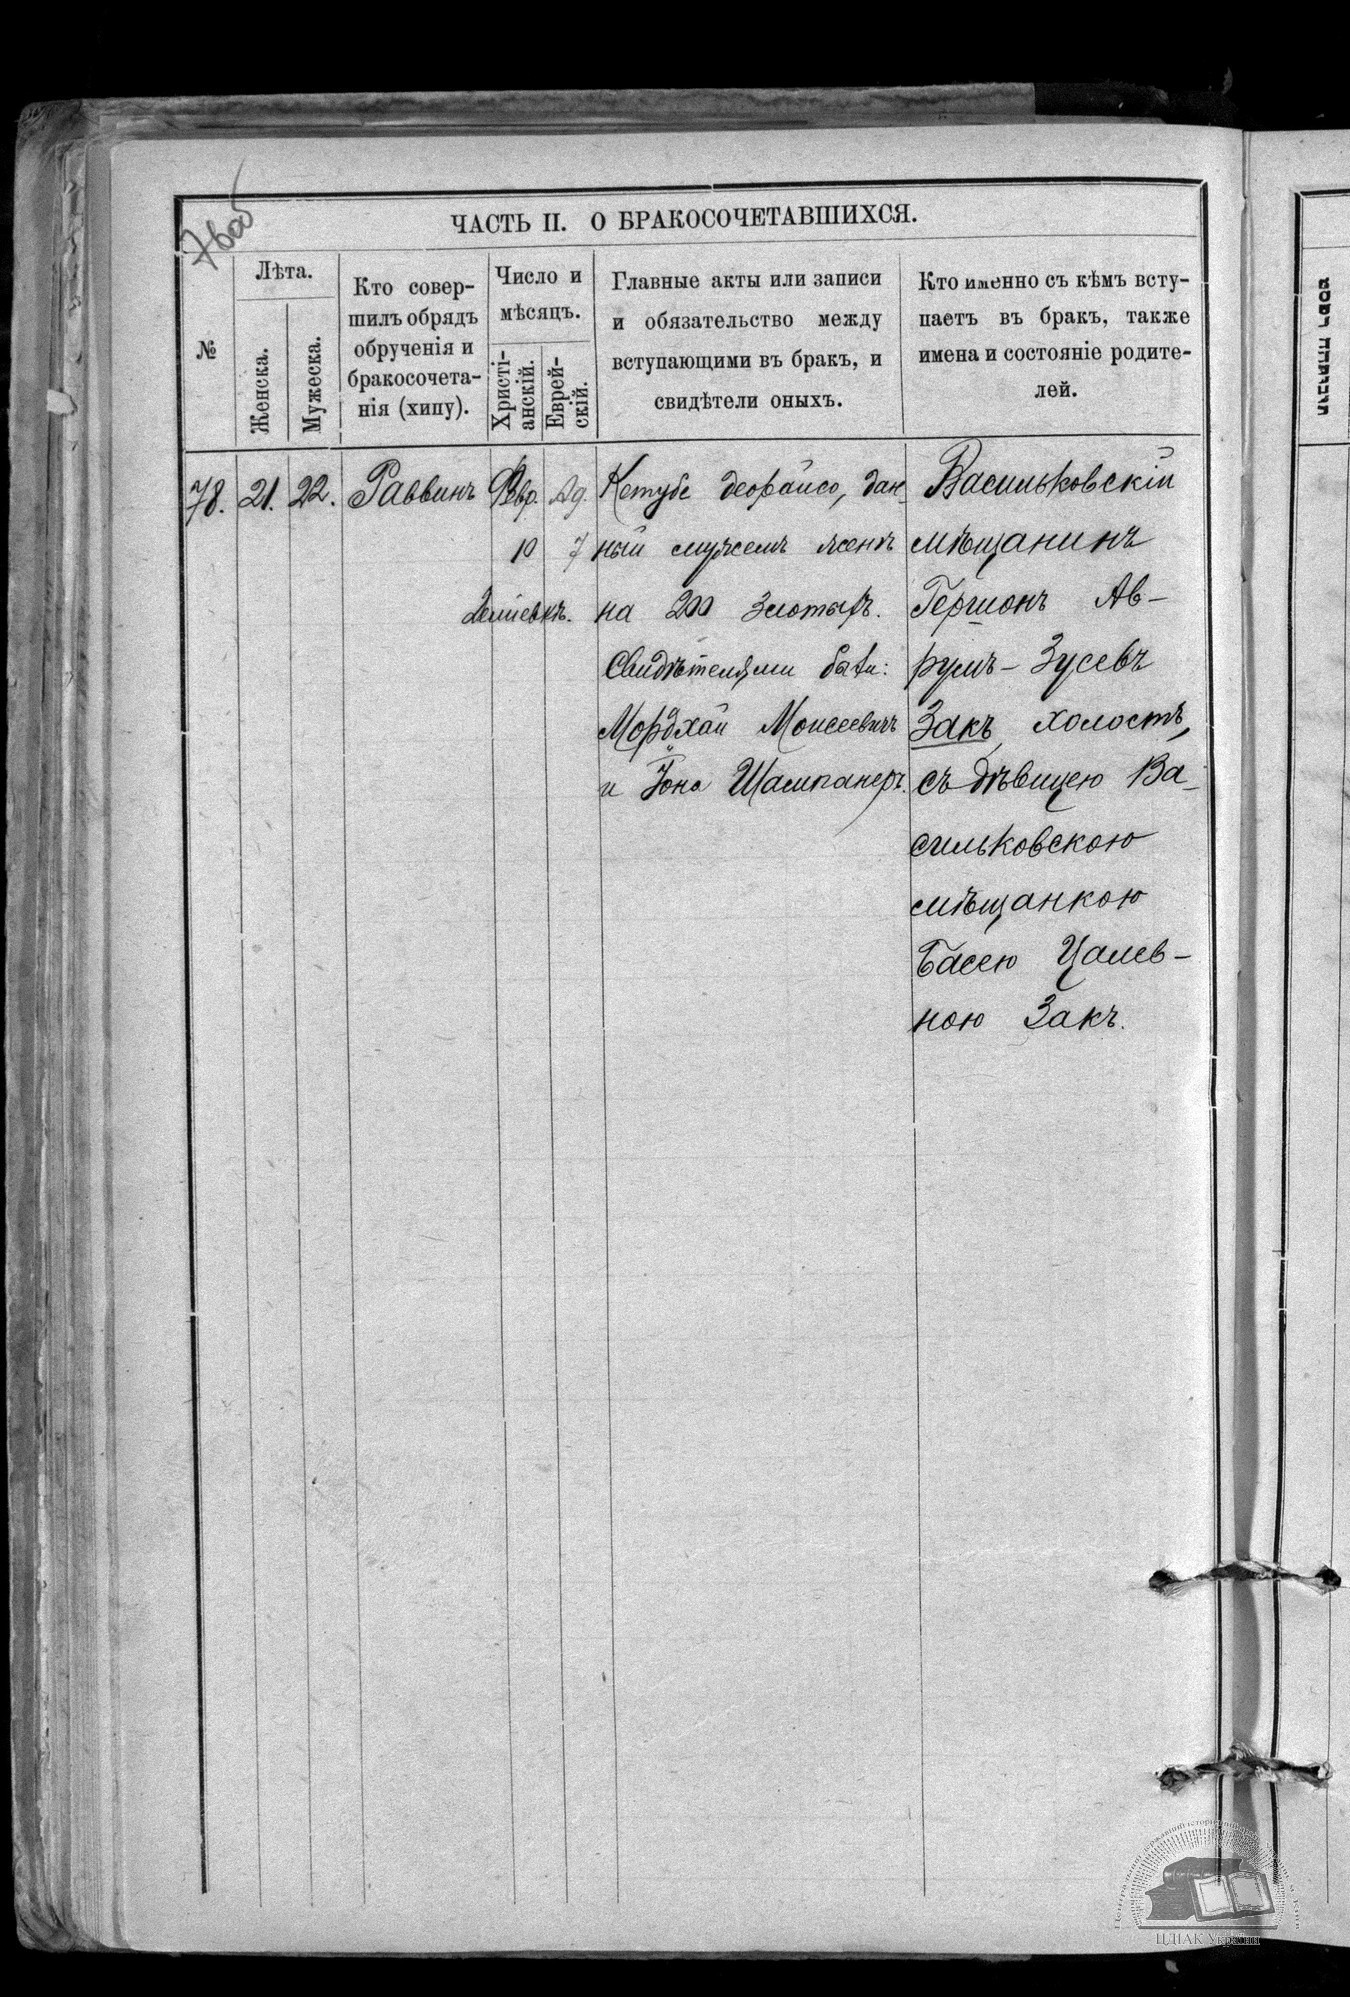 76об
ЧАСТЬ II. О БРАКОСОЧЕТАВШИХСЯ.
№
Лѣта.
Женска.
Мужеска.
Кто совер-
шилъ обрядъ
обрученія и
бракосочета-
нія (хипу).
Число и
мѣсяцъ.
Христі-
анскій.
Еврей-
скій.
Главные акты или записи
и обязательство между
вступающими въ бракъ, и
свидѣтели оныхъ.
Кто именно съ кѣмъ всту-
паетъ въ бракъ, также
имена и состояніе родите-
лей.
78.
21.
22.
Раввинъ
Февр.
10
Ад.
7
Демievкѣ.
Кетубе деорайсо, дан-
ный мужемъ женѣ
на 200 злотыхъ.
Свидѣтелями были:
Мордхай Моисеевичъ
и Іона Шампанеръ.
Васильковскій
мѣщанинъ
Гершонъ Ав-
румъ-Зусевъ
Закъ, холостъ,
съ дѣвицею Ва-
сильковскою
мѣщанкою
Басею Цалев-
ною Закъ.
ЦДІАК України